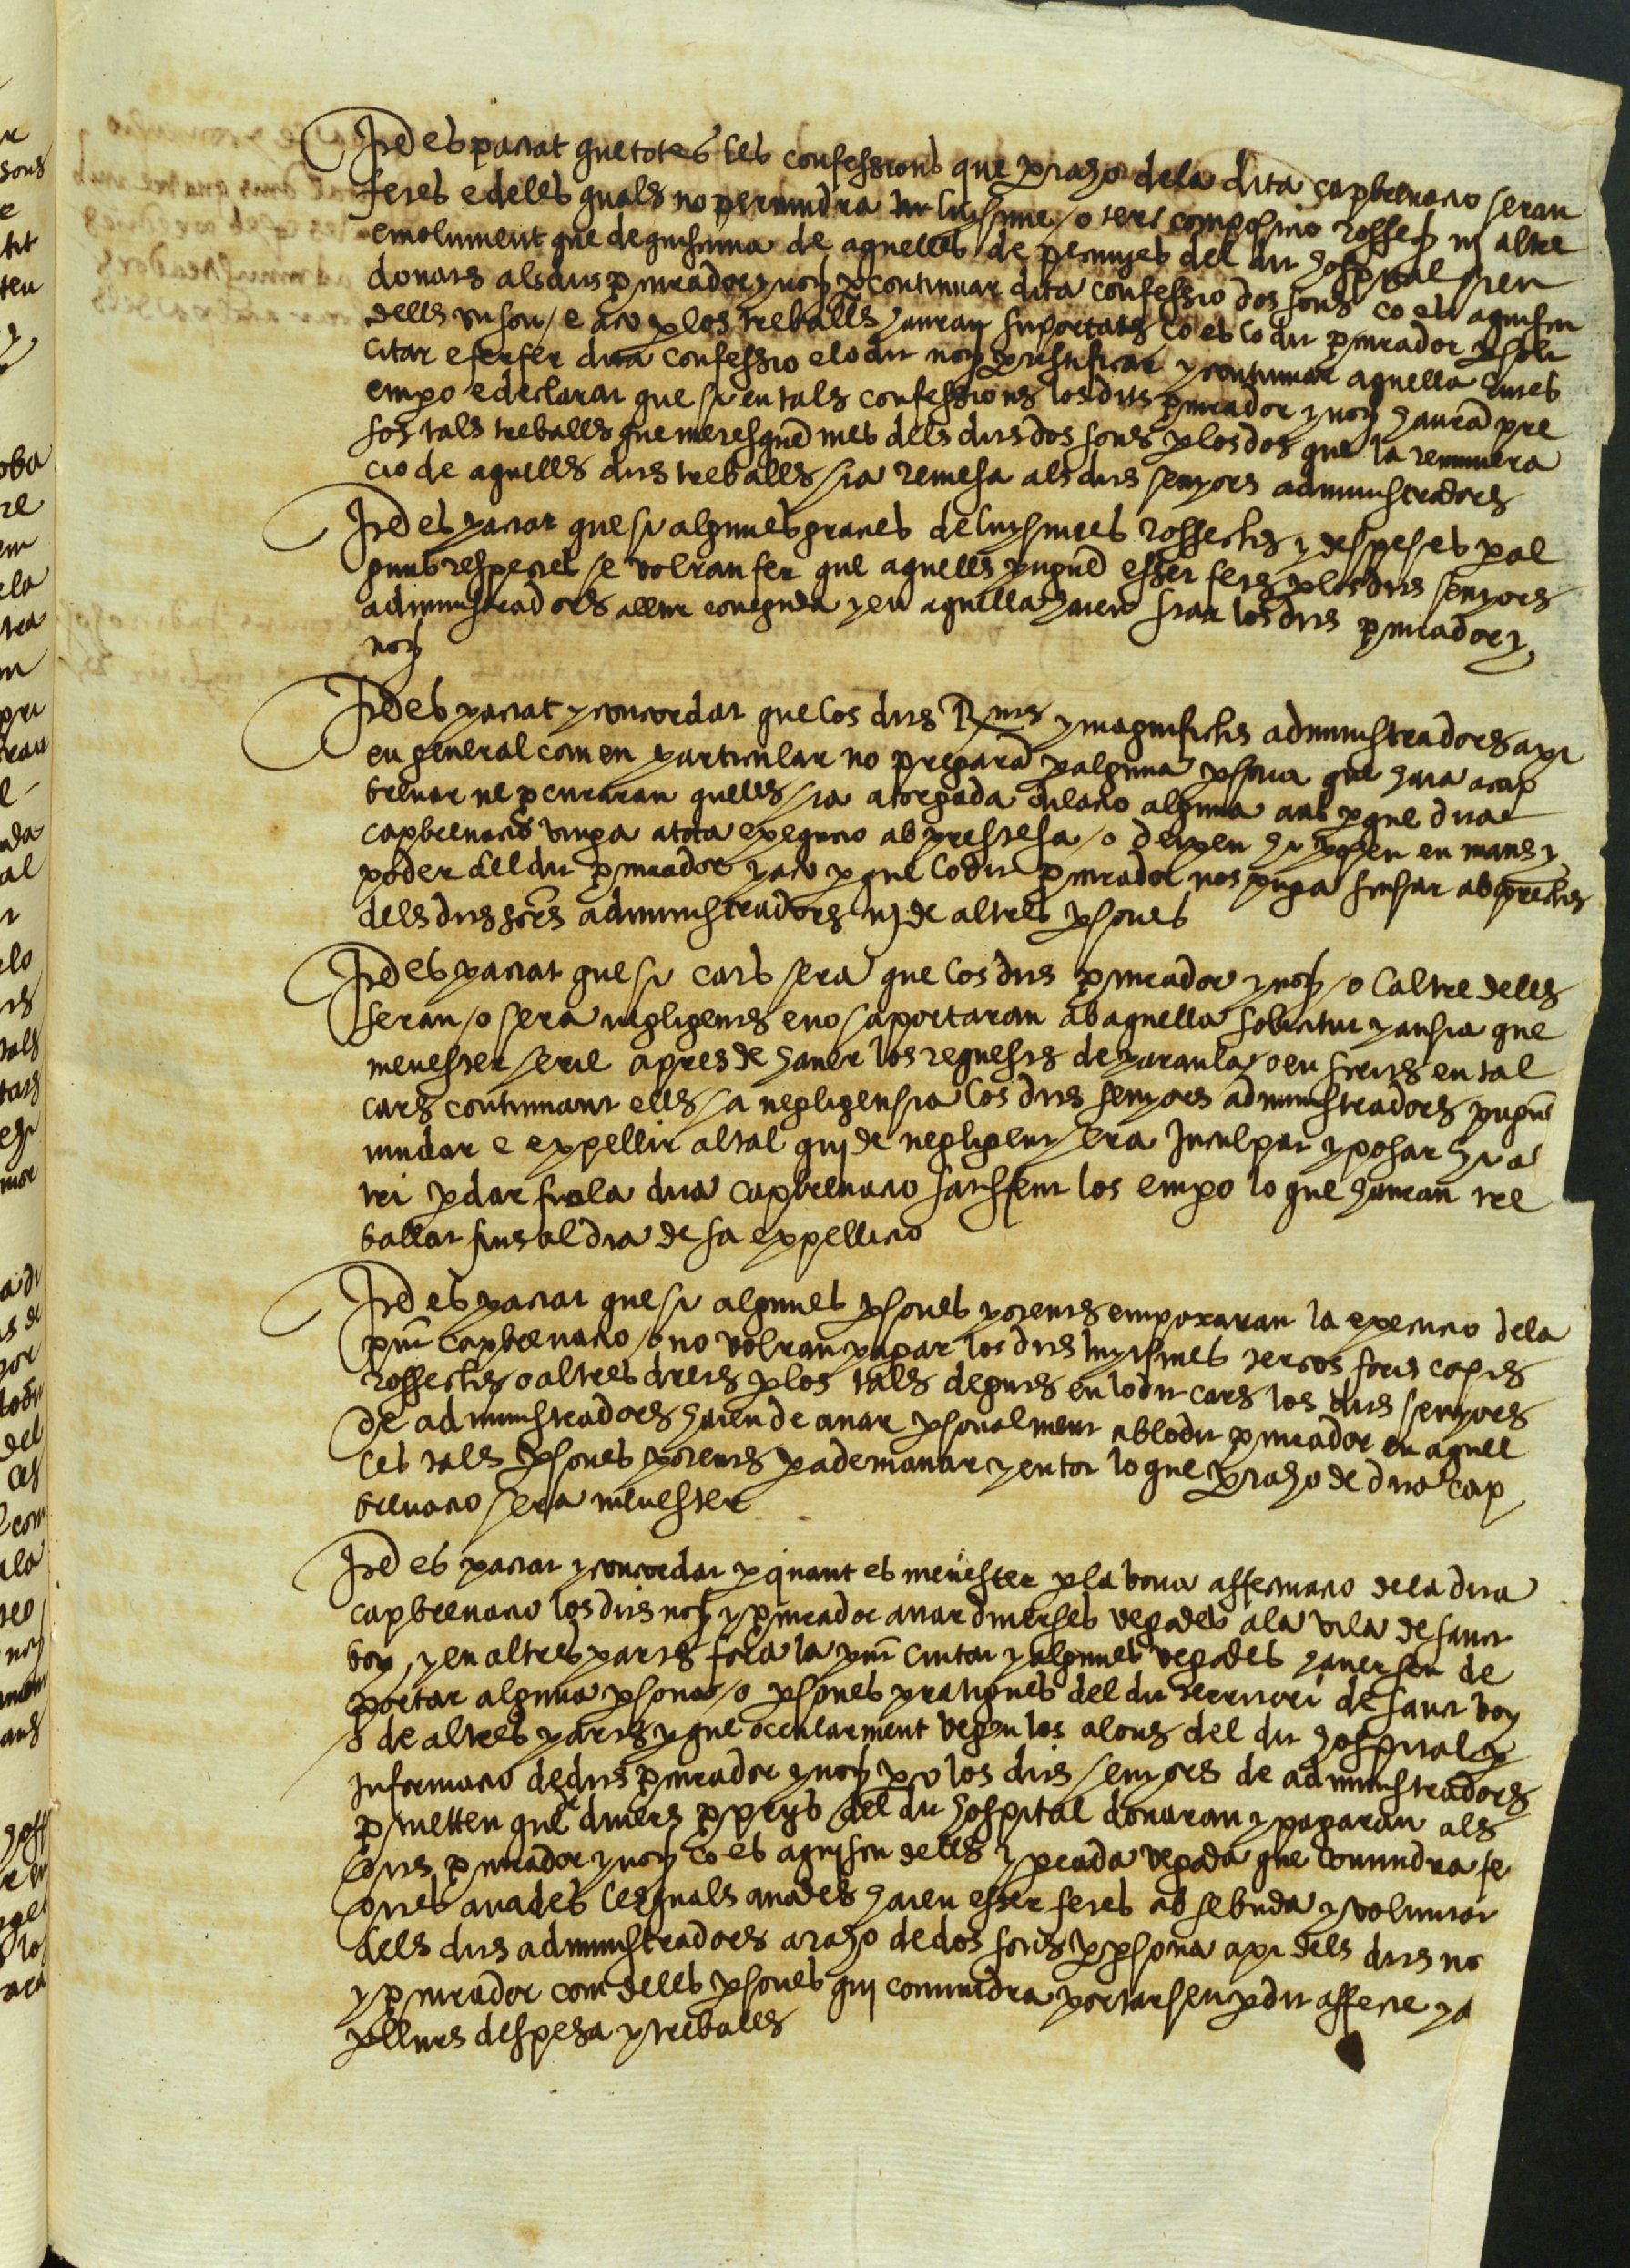 Ite es pactat que totes les confessions que p raho dela dita capbrevacio seran
fetes e deles quals no pervindra luisme / o ters composicio rossech nj altre
emolument que deguisima de aquelles de pecunyes del dit hospital sien
donats als dits pcurador y not p continuar dita confessio dos sous co es aquiscu
dells un sou / e aco p los treballs hauran suportats co es lo dit pcurador p soli
citar e fer fer dita confessio e lo dit not p testificar y continuar aquella entes
empo e declarat que si en tals confessions los dits pcurador y not haura pre
sos tals treballs que meresque mes dels dits dos sous p los dos que la remunera
cio de aquells dits treballs sia remesa als dits senyors administradors
Ite es pactat que si algunes gracies de luysmes rossechs y despeses p al
guns respectes se volran fer que aquells pugue esser fets p los dits senyors
administradors a llur coneguda y en aquella haien star los dits pcurador y
not
Ite es pactat y concordat que los dits Rnts y magnifichs administradors axi
en general com en particular no pregara p alguna psona que haia a cap
brevar ne pcuraran quells sia atorgada dilacio alguna ans p que dita
capbrevacio vinga a tota exequcio ab prestesa / o dexen hi posen en mans y
poder del dit pcurador y aco p que lo dit pcurador nos puga scusar ab prechs
dels dits sors administradors nj de altres psones
Ite es pactat que si cars sera que los dits pcurador y not / o laltre dells
seran / o sera negligents e no saportaran ab aquella solicitut y ansia que
menester serie apres de haver los requests de paraula / o en scrits en tal
cars continuant ells sa negligensia los dits senyors administradors pugue
mudar e expellir al tal qui de negligent sera inculpat y posar hi al
tri p dar fi a la dita capbrevacio satisfent los empo lo que hauran tre
ballat fins al dia de sa expellicio
Ite es pactat que si algunes psones potents empaxaran la execucio dela
pnt capbrevacio / o no volran pagar los dits luysmes tersos foris capis
rossechs o altres drets p los tals deguts en lo dit cars los dits senyors
de administradors haien de anar psonalment ab lo dit pcurador en aquel
les tals psones potents p a demanar y en tot lo que p raho de dita cap
brevacio sera menester
Ite es pactat y concordat p quant es menester p la bona affectuacio dela dita
capbrevacio los dits not y pcurador anar diverses vegades ala vila de sanct
boy / y en altres parts fora la pnt ciutat y algunes vegades haversen de
portar alguna psona / o psones pratiques del dit territori de sanct boy
o de altres parts p que ocularment vegen los alous del dit hospital p
informacio de dits pcurador y not p co los dits senyors de administradors
pmetten que diners pprys del dit hospital donaran y pagaran als
dits pcurador y not co es aquiscu dells y p cada vegada que convindra fe
dites anades les quals anades haien esser fetes ab sebuda y voluntat
dels dits administradors a raho de dos sous p psona axi dels dits no
y pcurador com deles psones qui convindra portarsen p dit affecte y a
p llurs despesa y treballs